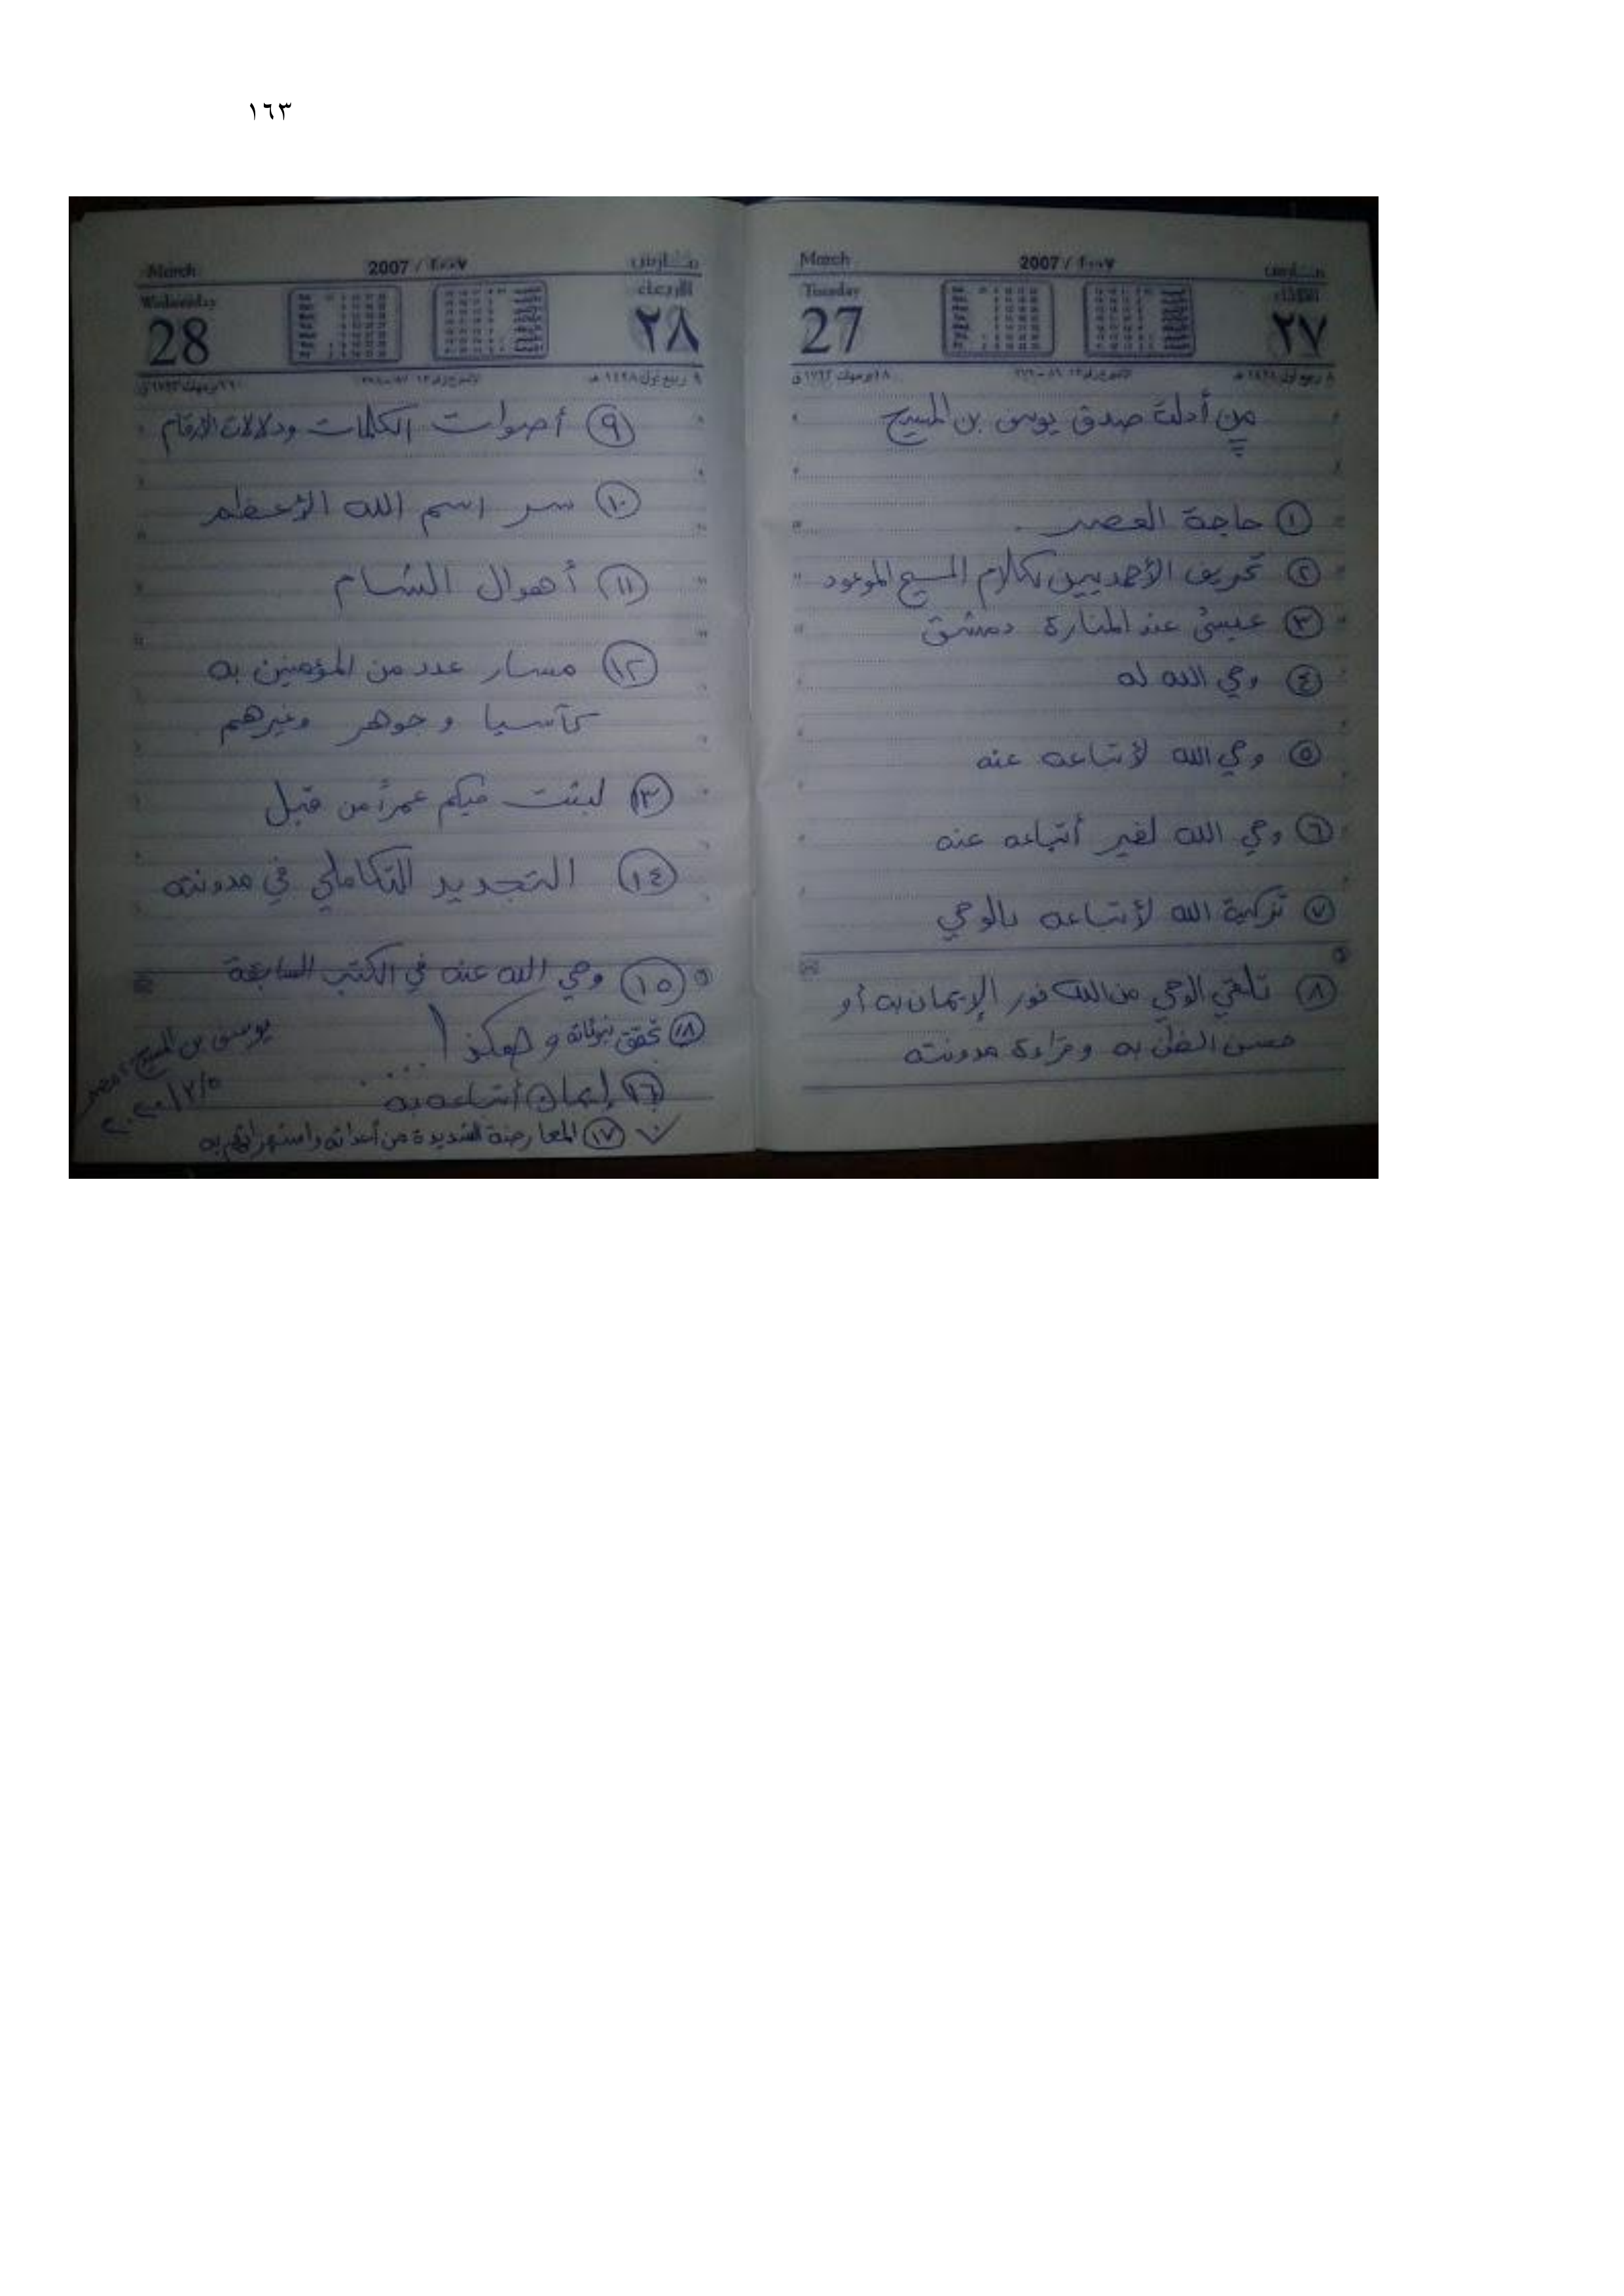 ١٦٣
March 2007 / ٢٠٠٧ مارس
Tuesday الثلاثاء
27 ٢٧
من أدلة صدق يوسف بن المسيح
١ حاجة العصر
٢ تحريف الأحمديين لكلام المسيح الموعود
٣ عيسى عند المنارة دمشق
٤ وحي الله له
٥ وحي الله لأتباعه عنه
٦ وحي الله لغير أتباعه عنه
٧ تزكية الله لأتباعه بالوحي
٨ تلقي الوحي من الله فور الإيمان به أو
حسن الظن به وقراءة مدونته
March 2007 / ٢٠٠٧ مارس
Wednesday الأربعاء
28 ٢٨
٩ أصوات الكلمات ودلالات الأرقام
١٠ سر اسم الله الأعظم
١١ أهوال الشام
١٢ مسار عدد من المؤمنين به
كآسيا و جوهر وغيرهم
١٣ لبثت فيكم عمراً من قبل
١٤ التجديد التكاملي في مدونته
١٥ وحي الله عنه في الكتب السابقة
١٨ تحقق نبوءاته و هكذا ...
١٦ إيمان أتباعه به
١٧ المعارضة الشديدة من أعدائه واستهزائهم به
يوسف بن المسيح